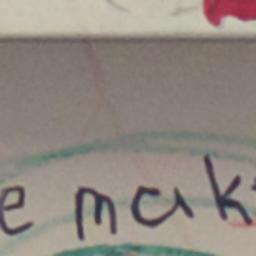 e mak